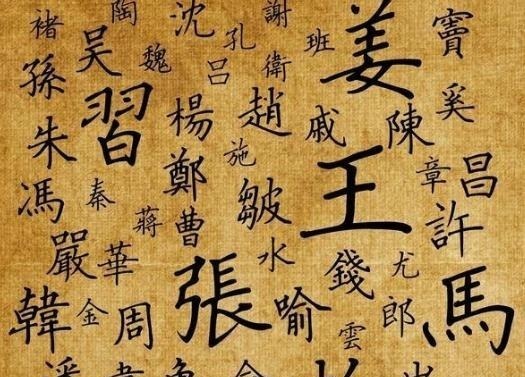 褚 陶 沈 謝 竇
孫 吳 魏 孔 班 姜
呂 衛 奚
朱 習 楊 趙 戚 陳
施 章 昌
馮 秦 鄭 皺 王
蔣 曹 許
嚴 華 水 錢 尤
韓 金 周 張 喻 雲 郎 馬